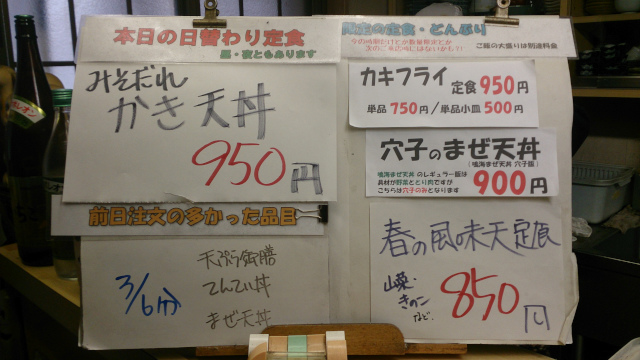 本日の日替わり定食
昼・夜ともあります
みそだれ
かき天丼
950円
前日注文の多かった品目
3/6分
天ぷら御膳
てんてい丼
まぜ天丼
限定の定食・どんぶり
ご飯の大盛りは別途料金
カキフライ 定食950円
単品 750円/単品小皿 500円
穴子のまぜ天丼
(鳴海まぜ天丼 穴子飯)
鳴海まぜ天丼 のレギュラー飯は
具材が野菜ととり肉ですが
こちらは穴子のみとなります
900円
春の風味天定食
山菜・
きのこ
など
850円